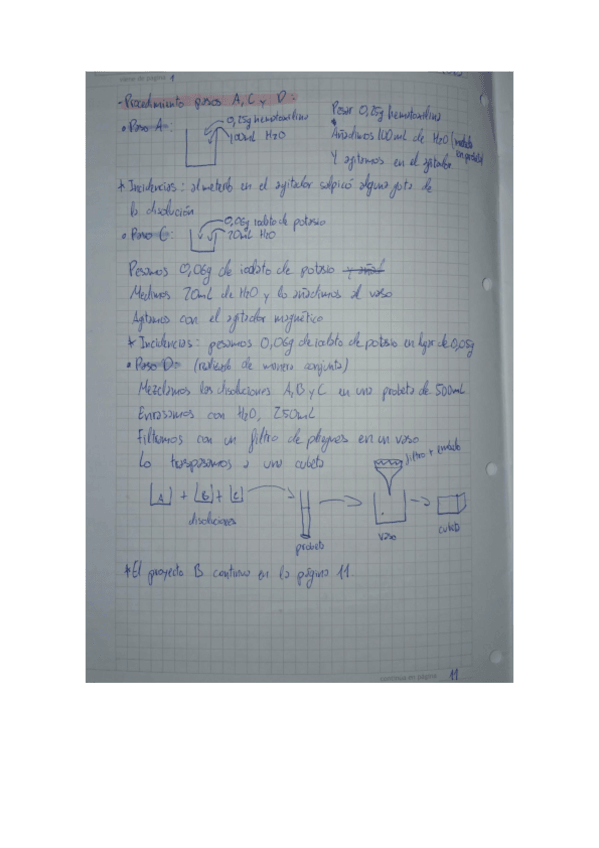 viene de página 1
- Procedimiento pasos A, C y D:
• Paso A:
0,25g hematoxilina
100mL H2O
Pesar 0,25g hematoxilina
Añadimos 100mL de H2O (medido en probeta)
Y agitamos en el agitador
* Incidencias: al meterlo en el agitador salpicó alguna gota de
la disolución
• Paso C:
0,06g iodato de potasio
70mL H2O
Pesamos 0,06g de iodato de potasio
Medimos 70mL de H2O y lo añadimos al vaso
Agitamos con el agitador magnético
* Incidencias: pesamos 0,06g de iodato de potasio en lugar de 0,05g
• Paso D: (realizado de manera conjunta)
Mezclamos las disoluciones A, B y C en una probeta de 500mL
Enrasamos con H2O, 250mL
Filtramos con un filtro de pliegues en un vaso
Lo traspasamos a una cubeta
filtro + embudo
A + B + C
disoluciones
probeta
vaso
cubeta
* El proyecto B continua en la página 11.
continúa en página 11